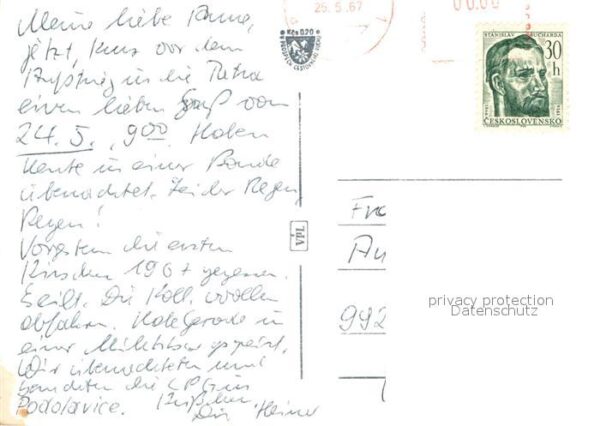 Meine liebe Anne,
jetzt, kurz vor dem
Aufstieg in die Tatra
einen lieben Gruß vom
24.5., 9.00. Haben
heute in einer Baude
übernachtet. Leider Regen,
Regen!
Vorgestern die ersten
Kirschen 1967 gegessen.
Die Koll. wollen
abfahren. Habe gerade in
einer Milchbar gespeist.
Wir übernachteten und
die LPG in
Podolavice.
Dein Heiner
Kčs 0,20
25.5.67
00.00
STANISLAV SUCHARDA
30
h
ČESKOSLOVENSKO
Fra
An
992
privacy protection
Datenschutz